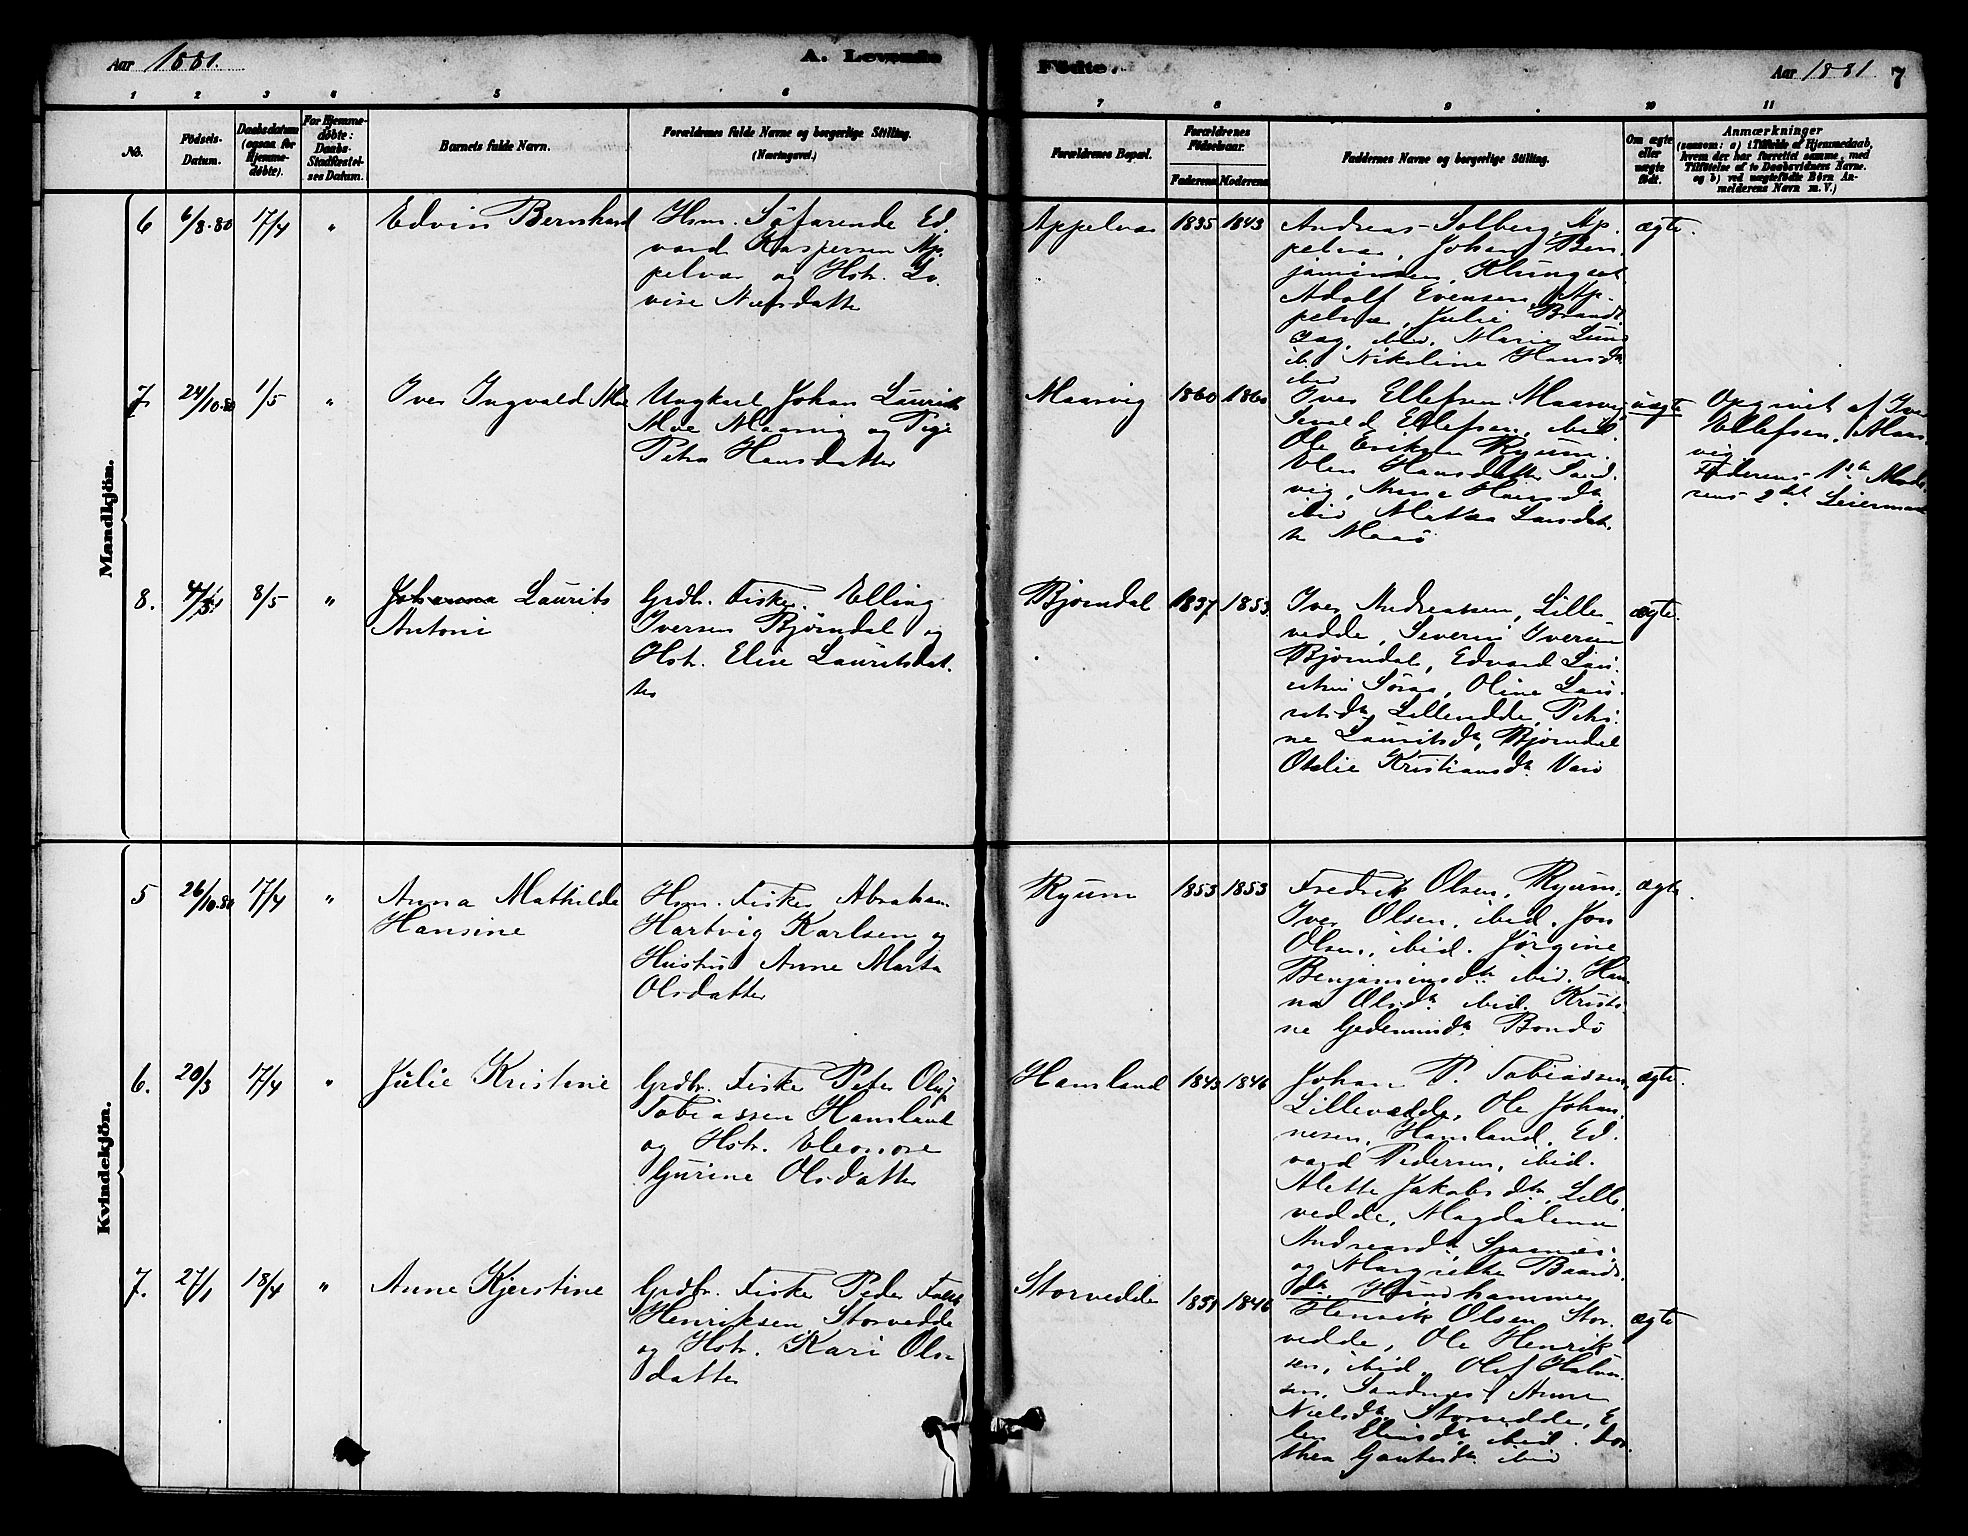 Aar 1881.
A. Levende
Födte.
Aar 1881
7
1 2 3 4 5 6 7 8 9 10 11
No.
Födsels-
Datum.
Daabsdatum
(ogsaa for
Hjemme-
döbte).
For Hjemme-
döbte:
Daabs-
Stadfæstel-
ses Datum.
Barnets fulde Navn.
Forældrenes fulde Navne og borgerlige Stilling.
(Næringsvei.)
Forældrenes Bopæl.
Forældrenes
Födselsaar.
Faderens Moderens
Faddernes Navne og borgerlige Stilling.
Om ægte
eller
uægte
födt.
Anmærkninger
(saasom: a) i Tilfælde af Hjemmedaab,
hvem der har forrettet samme, med
Tilföielse af to Daabsvidners Navne.
og b) ved uægtefödte Börn An-
melderens Navn m. V.)
Mandkjön.
6
6/8.80
17/4
"
Edvin Bernhard
Hsm. Söfarende Ed-
vard Kaspersen Ap-
pelvær og Hstr. Lo-
vise Nilsdatter
Appelvær
1835
1843
Andreas Solberg, Ap-
pelvær, Johan Ben-
jaminsen Klungset
Adolf Evensen, Ap-
pelvær, Julie Brandt
zag, ibid. Marie Lund
ib. Nikoline Hansdtr
ibid
ægte.
7.
24/10.80
1/5
"
Iver Ingvald Moe
Ungkarl Johan Laurits
Moe Maasvig og Pige
Petra Hansdatter
Maasvig
1860
1860
Iver Ellefsen Maasvig
Sevald Ellefsen, ibid.
Ole Eriksen Ryum.
Elen Hansdatter Sand-
vig, Anna Hansdtr
ibid Metha Larsdat-
ter Maasö
uægte
Opgivet af Iver
Ellefsen, Maas-
vig
Faderens 1ste Mode-
rens 2det Leiermaal
8.
8/5
"
Johanna Laurits
Antoni
Grdbr. Fisker. Elling
Iversen Bjørndal og
Hstr. Elise Lauritsdat-
ter
Bjørndal
1837
1853.
Iver Andreassen, Lille-
vedde, Severin Iversen
Bjørndal, Edvard Lau-
ritsen Söraa, Oline Lau-
ritsdtr Lillevedde, Petri-
ne Lauritsdtr, Bjørndal
Otelie Kristiansdtr. Varö
ægte.
Kvindekjön.
5
26/10.80
17/4
"
Anna Mathilde
Hansine
Hsm. Fisker Abraham
Hartvig Karlsen og
Hustru Anne Marta
Olsdatter
Ryum
1853
1853
Fredrik Olsen, Ryum.
Iver Olsen, ibid. Jon
Olsen, ibid. Jörgine
Benjaminsdtr. ibid. Han-
na Olsdtr ibid. Kristi-
ne Gedemundtr Bondö
ægte.
6.
20/3
17/4
"
Julie Kristine
Grdbr. Fisker Peter Oluf
Tobiassen Hamland
og Hstr. Eleonore
Gurine Olsdatter
Hamland
1843
1846
Johan P. Tobiassen,
Lillevedde, Ole Johan-
nesen, Hamland. Ed-
vard Pedersen, ibid.
Mette Jakobsdtr. Lille-
vedde, Magdalena
Andreasdtr. Spannæs
og Margrethe Baards-
dtr. Hundhammer
ægte.
7.
27/1
18/4
"
Anne Kjerstine
Grdbr. Fisker Peder Falk
Henriksen Storvedde
og Hstr. Kari Ols-
datter
Storvedde
1851
1846
Henrik Olsen Stor-
vedde, Ole Henrik-
sen, ibid. Olaf Halvor-
sen, Sandnes, Anne
Nielsdtr. Storvedde, E-
len Eliasdtr. ibid. Dor-
thea Gautesdtr. ibid
ægte